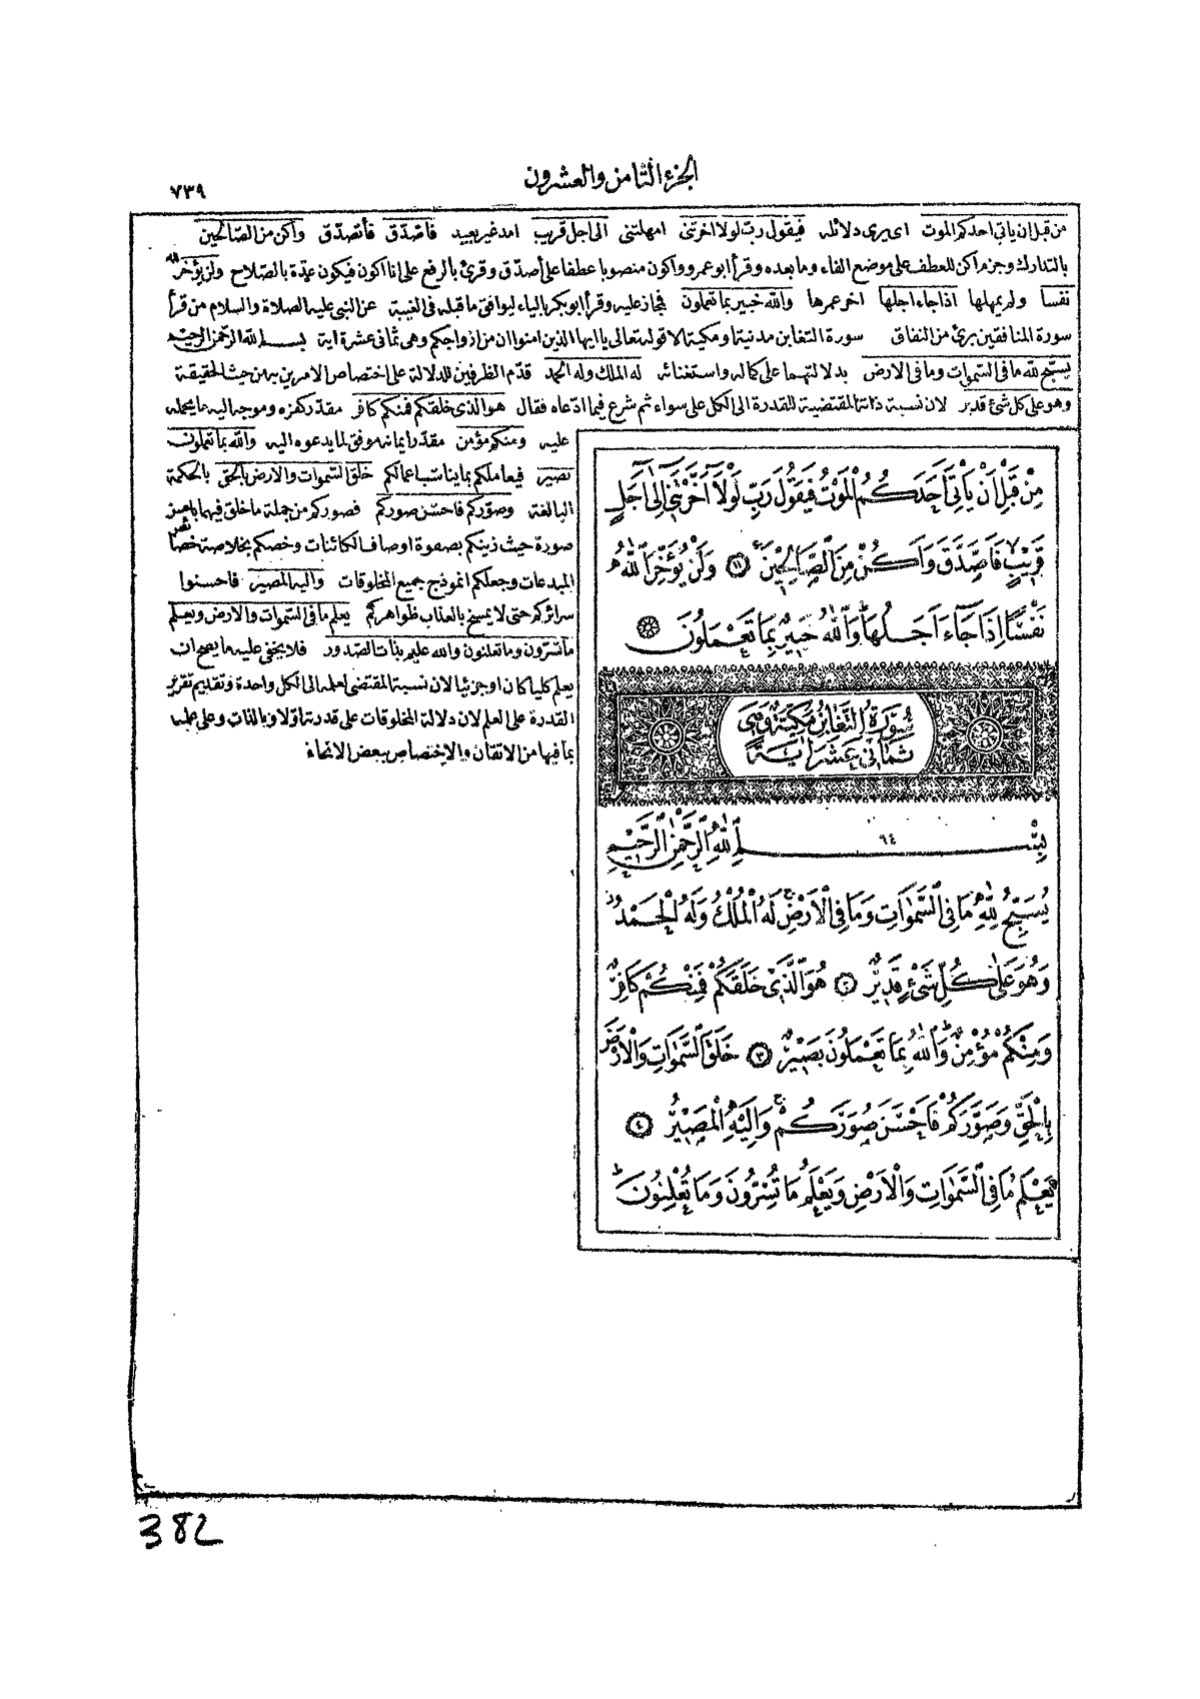 الجزء الثامن والعشرون
٧٣٩
من قبل ان يأتي احدكم الموت اى يرى دلائله فيقول رب لولا اخرتنى امهلتنى الى اجل قريب امد غير بعيد فاصدق فأتصدق واكن من الصالحين
بالتدارك وجزم اكن للعطف على موضع الفاء وما بعده وقرأ ابو عمرو واكون منصوبا عطفا على أصدق وقرئ بالرفع على انا اكون فيكون عدة بالصلاح ولن يؤخر الله
نفسا ولن يمهلها اذا جاء اجلها اخر عمرها والله خبير بما تعملون فمجاز عليه وقرأ ابو بكر بالياء ليوافق ما قبله فى الغيبة عن النبى عليه الصلاة والسلام من قرأ
سورة المنافقين برئ من النفاق سورة التغابن مدنية او مكية الا قوله تعالى يا ايها الذين امنوا ان من ازواجكم وهى ثمانى عشرة اية بسم الله الرحمن الرحيم
يسبح لله ما فى السموات وما فى الارض بدلالتهما على كماله واستغنائه له الملك وله الحمد قدم الظرفين للدلالة على اختصاص الامرين به من حيث الحقيقة
وهو على كل شئ قدير لان نسبة ذاته المقتضية للقدرة الى الكل على سواء ثم شرع فيما ادعاه فقال هو الذى خلقكم فمنكم كافر مقدر كفره وموجه اليه ما يحمله
عليه ومنكم مؤمن مقدر ايمانه موفق لما يدعوه اليه والله بما تعملون
بصير فيعاملكم بما يناسب اعمالكم خلق السموات والارض بالحق بالحكمة
البالغة وصوركم فاحسن صوركم فصوركم من جملة ما خلق فيهما باحسن
صورة حيث زينكم بصفوة اوصاف الكائنات وخصكم بخلاصة خصائص
المبدعات وجعلكم انموذج جميع المخلوقات واليه المصير فاحسنوا
سرائركم حتى لا يمسخ بالعذاب ظواهركم يعلم ما فى السموات والارض ويعلم
ما تسرون وما تعلنون والله عليم بذات الصدور فلا يخفى عليه ما يصح ان
يعلم كليا كان او جزئيا لان نسبة المقتضى لعلمه الى الكل واحدة وتقديم تقرير
القدرة على العلم لان دلالة المخلوقات على قدرته اولا وبالذات وعلى علمه
بما فيها من الاتقان والاختصاص ببعض الانحاء
مِنْ قَبْلِ اَنْ يَأْتِيَ اَحَدَكُمُ الْمَوْتُ فَيَقُولَ رَبِّ لَوْلَٓا اَخَّرْتَنٖٓي اِلٰٓى اَجَلٍ
قَرٖيبٍ فَاَصَّدَّقَ وَاَكُنْ مِنَ الصَّالِحٖينَ ﴿١١﴾ وَلَنْ يُؤَخِّرَ اللّٰهُ
نَفْسًا اِذَا جَٓاءَ اَجَلُهَا وَاللّٰهُ خَبٖيرٌ بِمَا تَعْمَلُونَ
سُورَةُ التَّغَابُنِ مَكِّيَّةٌ وَهِيَ
ثَمَانِي عَشَرَ اٰيَةً
٦٤
بِسْمِ اللّٰهِ الرَّحْمٰنِ الرَّحٖيمِ
يُسَبِّحُ لِلّٰهِ مَا فِي السَّمٰوَاتِ وَمَا فِي الْاَرْضِ لَهُ الْمُلْكُ وَلَهُ الْحَمْدُ
وَهُوَ عَلٰى كُلِّ شَيْءٍ قَدٖيرٌ ﴿٢﴾ هُوَ الَّذٖي خَلَقَكُمْ فَمِنْكُمْ كَافِرٌ
وَمِنْكُمْ مُؤْمِنٌ وَاللّٰهُ بِمَا تَعْمَلُونَ بَصٖيرٌ ﴿٣﴾ خَلَقَ السَّمٰوَاتِ وَالْاَرْضَ
بِالْحَقِّ وَصَوَّرَكُمْ فَاَحْسَنَ صُوَرَكُمْ وَاِلَيْهِ الْمَصٖيرُ ﴿٤﴾
يَعْلَمُ مَا فِي السَّمٰوَاتِ وَالْاَرْضِ وَيَعْلَمُ مَا تُسِرُّونَ وَمَا تُعْلِنُونَ
382